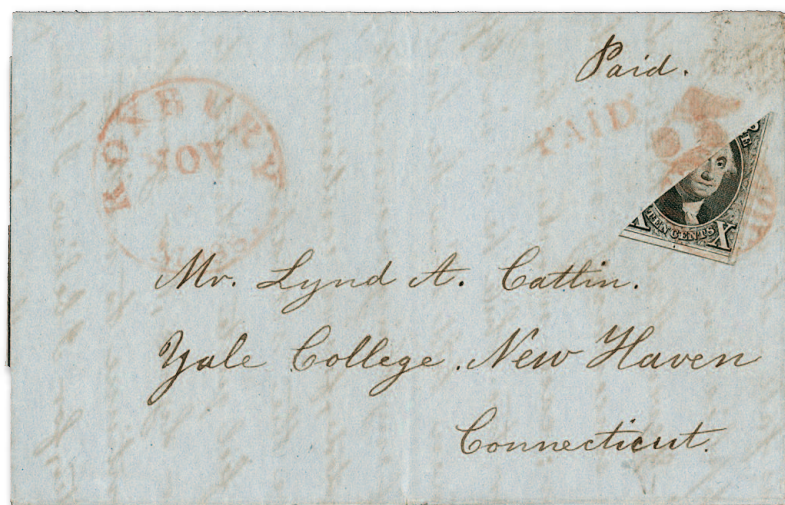 Paid.
PAID
ROXBURY
NOV
MASS
TEN CENTS
X X
Mr. Lynd A. Catlin.
Yale College. New Haven
Connecticut.